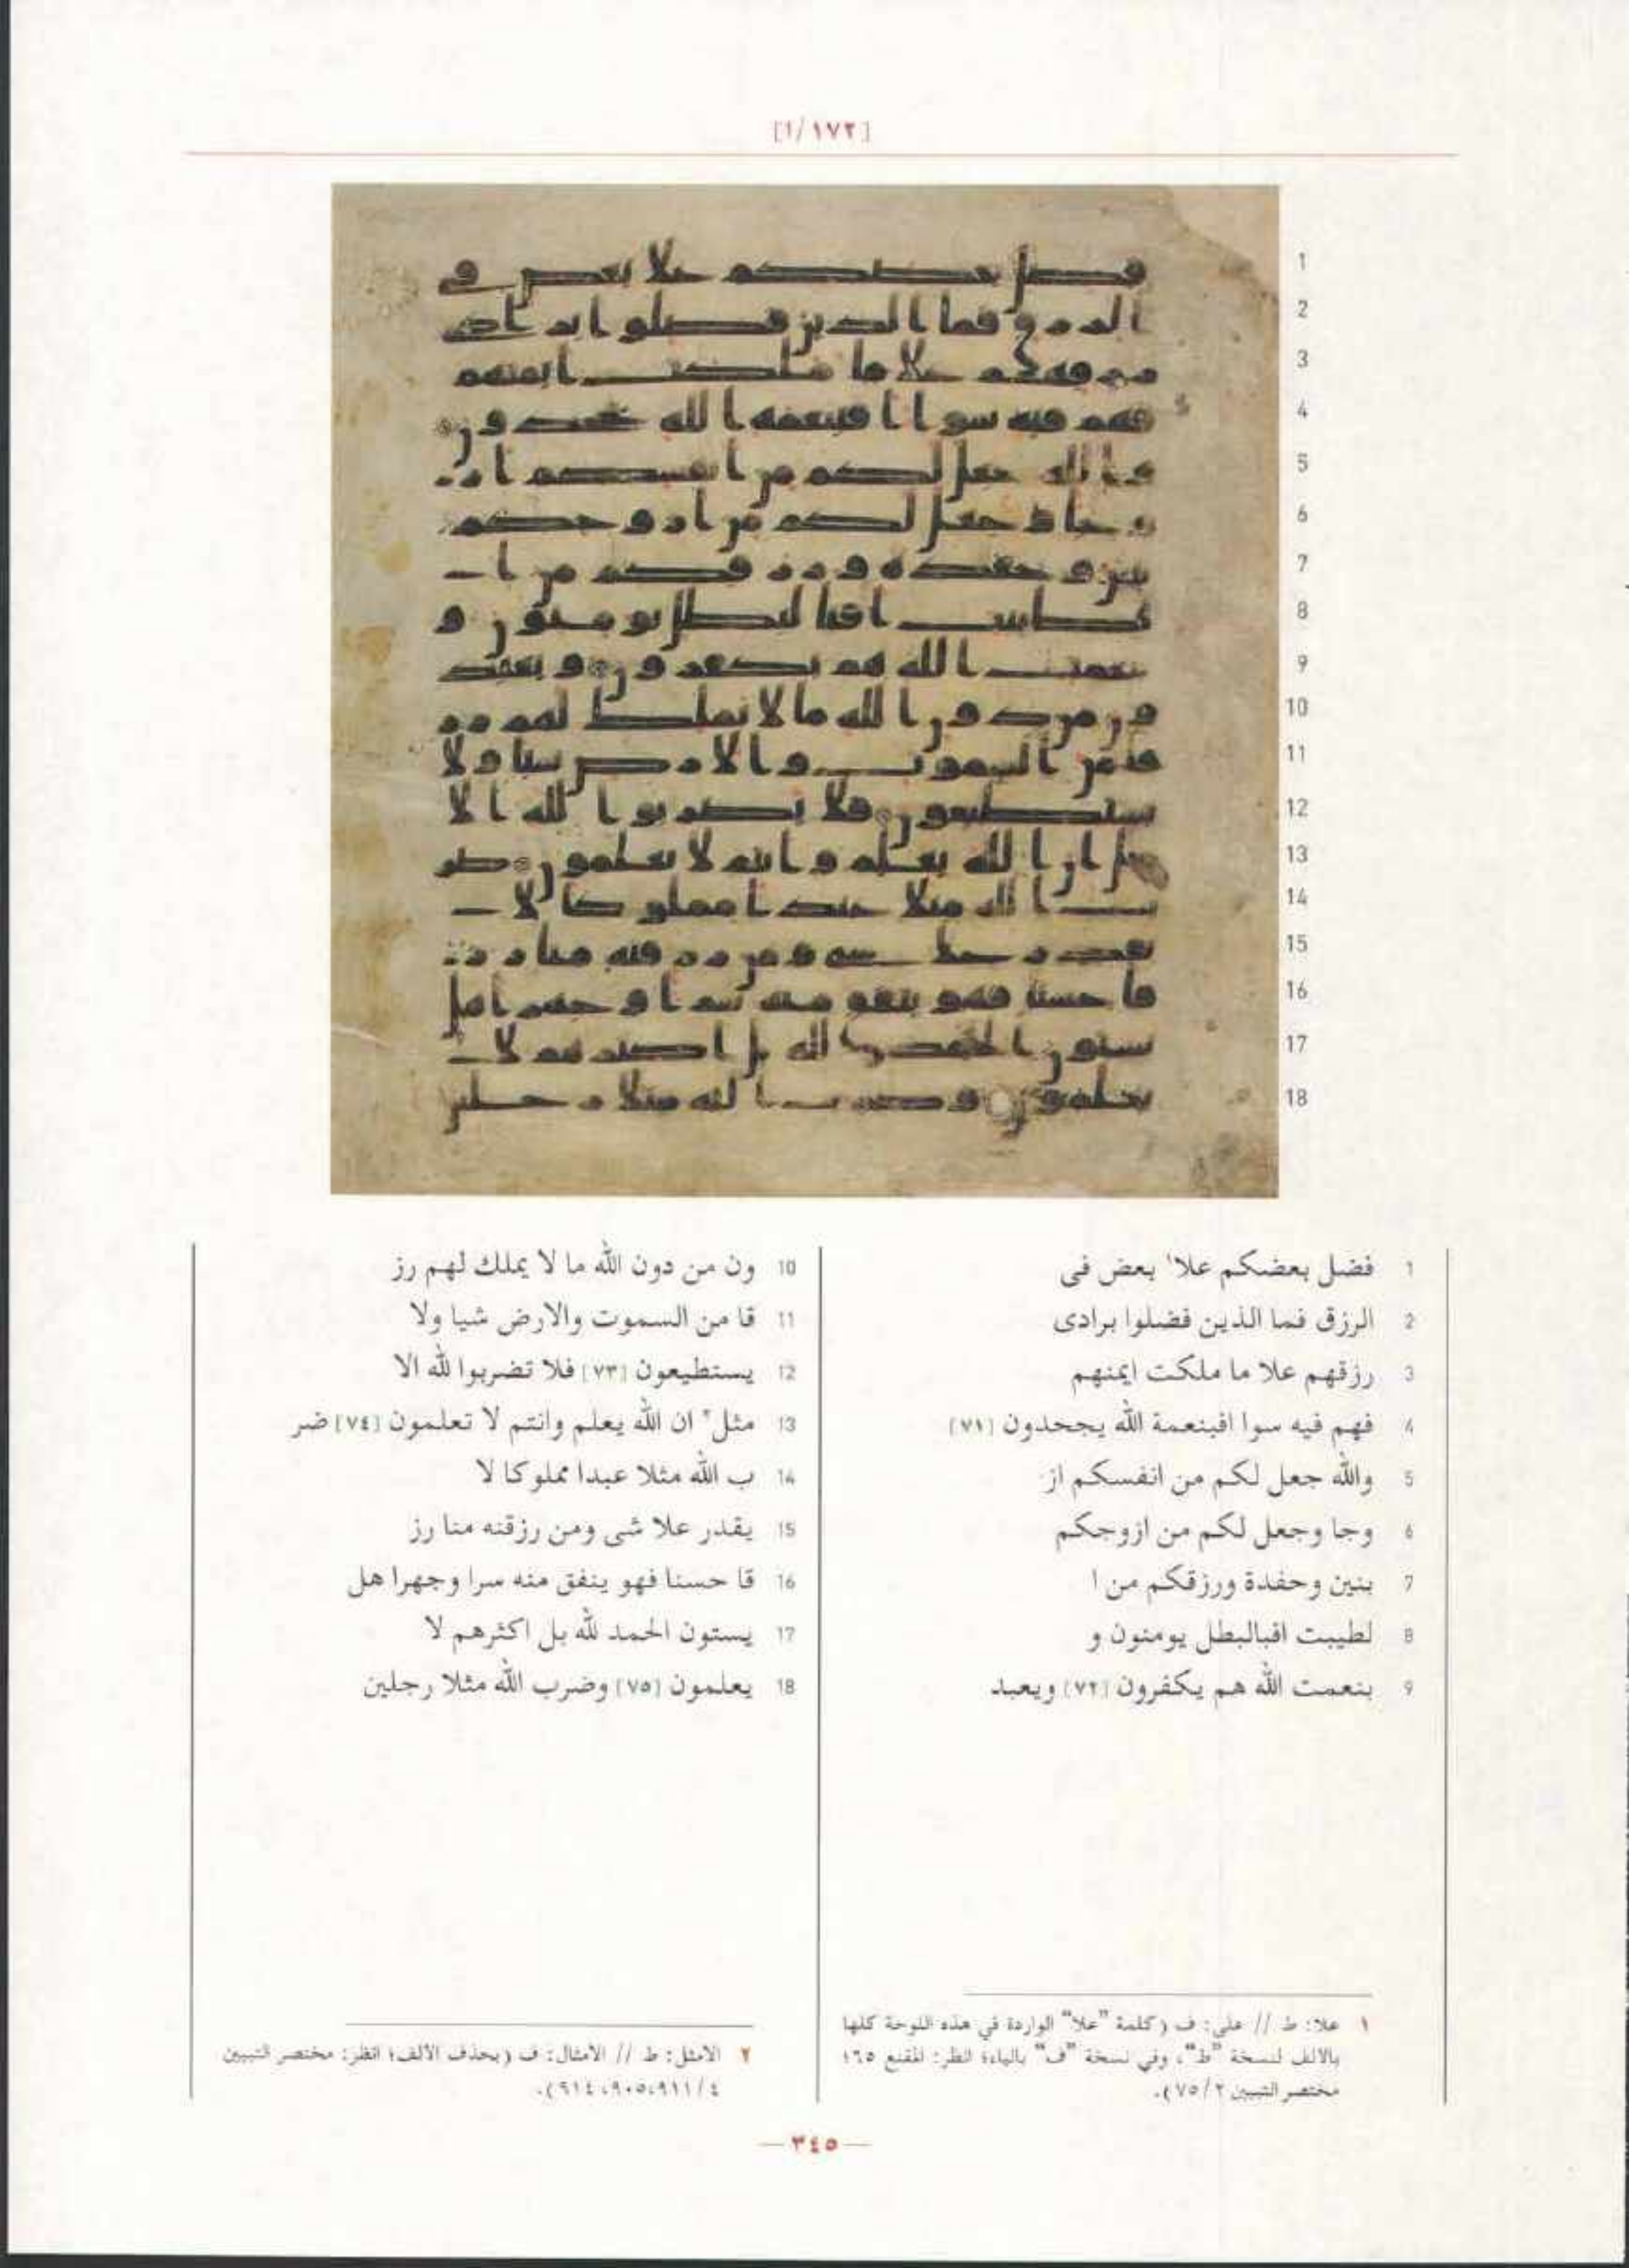 [١/١٧٢]
1
2
3
4
5
6
7
8
9
10
11
12
13
14
15
16
17
18
1 فضل بعضكم علا١ بعض فى
2 الرزق فما الذين فضلوا برادى
3 رزقهم علا ما ملكت ايمنهم
4 فهم فيه سوا افبنعمة الله يجحدون [٧١]
5 والله جعل لكم من انفسكم از
6 وجا وجعل لكم من ازوجكم
7 بنين وحفدة ورزقكم من ا
8 لطيبت افبالبطل يومنون و
9 بنعمت الله هم يكفرون [٧٢] ويعبد
10 ون من دون الله ما لا يملك لهم رز
11 قا من السموت والارض شيا ولا
12 يستطيعون [٧٣] فلا تضربوا لله الا
13 مثل٢ ان الله يعلم وانتم لا تعلمون [٧٤] ضر
14 ب الله مثلا عبدا مملوكا لا
15 يقدر علا شى ومن رزقنه منا رز
16 قا حسنا فهو ينفق منه سرا وجهرا هل
17 يستون الحمد لله بل اكثرهم لا
18 يعلمون [٧٥] وضرب الله مثلا رجلين
١ علا: ط // على: ف (كلمة "علا" الواردة في هذه اللوحة كلها
بالالف لنسخة "ط"، وفي نسخة "ف" بالياء؛ انظر: المقنع ٦٥؛
مختصر التبيين ٧٥/٢).
٢ الامثل: ط // الامثال: ف (بحذف الالف؛ انظر: مختصر التبيين
٤/٩١١،٩٠٥،٩١٤).
— ٣٤٥ —